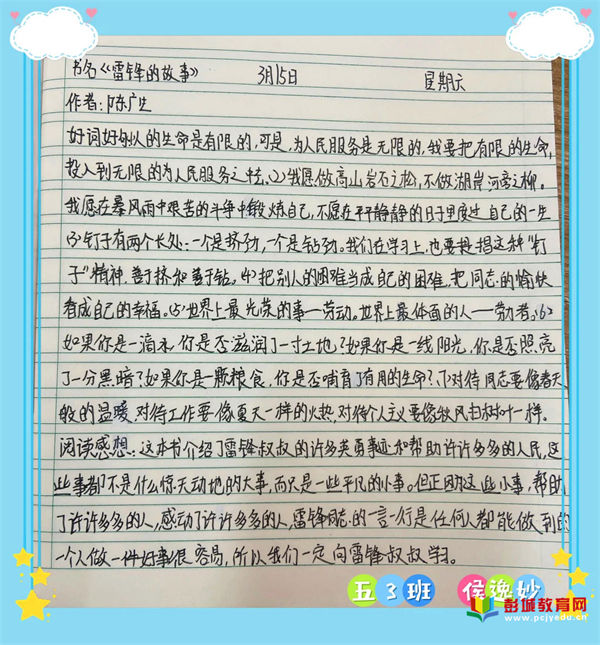 书名《雷锋的故事》 3月15日 星期六
作者:陈广生
好词好句:人的生命是有限的,可是,为人民服务是无限的,我要把有限的生命,
投入到无限的为人民服务之中去.(2)我愿做高山岩石之松,不做湖岸河旁之柳。
我愿在暴风雨中艰苦的斗争中锻炼自己,不愿在平平静静的日子里度过自己的一生
(3)钉子有两个长处:一个是挤劲,一个是钻劲。我们在学习上,也要提倡这种"钉
子"精神,善于挤和善于钻。(4)把别人的困难当成自己的困难,把同志的愉快
看成自己的幸福。(5)世界上最光荣的事—劳动。世界上最体面的人——劳动者。(6)
如果你是一滴水,你是否滋润了一寸土地?如果你是一线阳光,你是否照亮
了一分黑暗?如果你是一颗粮食,你是否哺育了有用的生命?(7)对待同志要像春天
般的温暖,对待工作要像夏天一样的火热,对待个人主义要像秋风扫树叶一样。
阅读感想:这本书介绍了雷锋叔叔的许多英勇事迹和帮助许许多多的人民,这
些事都不是什么惊天动地的大事,而只是一些平凡的小事。但正因为这些小事,帮助
了许许多多的人,感动了许许多多的人,雷锋同志的一言一行是任何人都能做到的
一个人做一件好事很容易,所以我们一定向雷锋叔叔学习。
五3班 侯逸妙
彭城教育网
www.pcjyedu.com